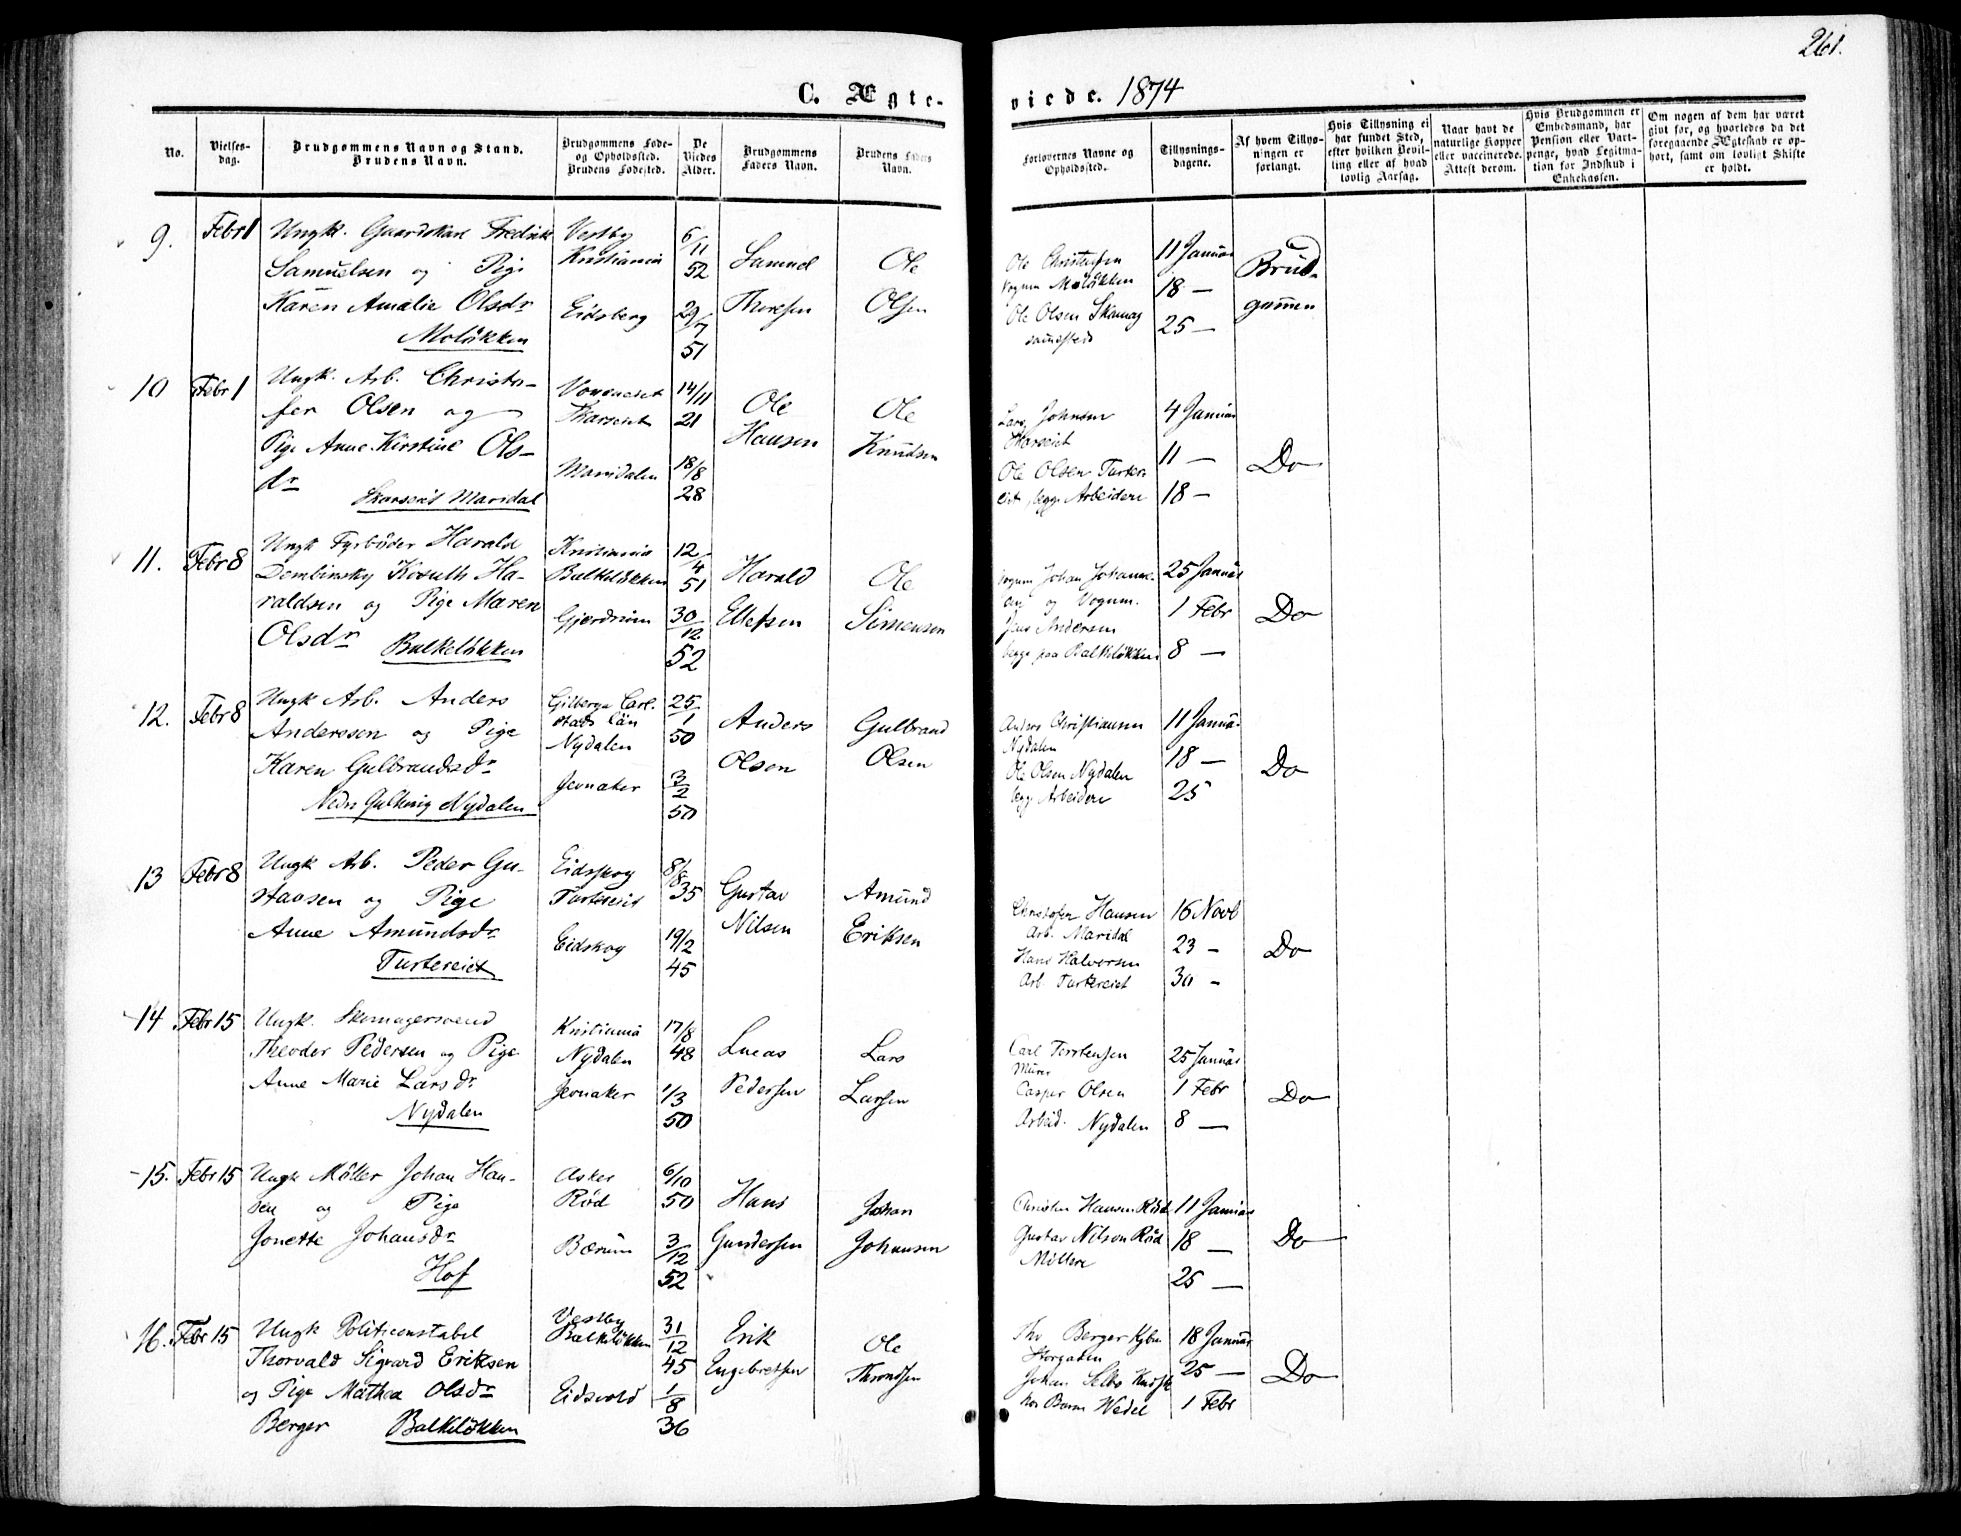 261.
C. Ægteviede. 1874
No.
Vielses-
dag.
Brudgommens Navn og Stand.
Brudens Navn.
Brudgommens Føde-
og Opholdssted.
Brudens Fødested.
De
Viedes
Alder.
Brudgommens
Faders Navn.
Brudens Faders
Navn.
Forlovernes Navne og
Opholdssted.
Tillysnings-
dagene.
Af hvem Tillys-
ningen er
forlangt.
Hvis Tillysning ei
har fundet Sted,
efter hvilken Bevil-
ling eller af hvad
lovlig Aarsag.
Naar havt de
naturlige Kopper
eller vaccinerede.
Attest derom.
Hvis Brudgommen er
Embedsmand, har
Pension eller Vart-
penge, hvad Legitima-
tion for Indskud i
Enkekassen.
Om nogen af dem har været
gift før, og hvorledes da det
foregaaende Ægteskab er op-
hørt, samt om lovligt Skifte
er holdt.
9. Febr 1
Ungk. Gaardskarl Fredrik
Samuelsen og Pige
Karen Amalie Olsdr
Moløkken
Vestby
Kristiania
Eidsberg
6/11
52
29/7
51
Samuel
Thoresen
Ole
Olsen
Ole Christensen
Vognm Moløkken
Ole Olsen Skomag
sammesteds
11 Januar
18 —
25 —
Brud-
gommen
10 Febr 1
Ungk. Arb. Christo-
fer Olsen og
Pige Anne Kirstine Ols-
dr
Skarseiet Maridal
Skarseiet
Maridalen
14/11
21
18/8
28
Ole
Hansen
Ole
Knudsen
Lars Johnsen
Skarseiet
Ole Olsen Turter-
eiet, begge Arbeidere
4 Januar
11 —
18 —
Do
11. Febr 8
Ungk Fyrbøder Harald
Dembinsky Kosuth Ha-
raldsen og Pige Maren
Olsdr Balkeløkken
Kristiania
Balkeløkken
Gjerdrum
12/4
51
30/12
52
Harald
Ellefsen
Ole
Simensen
Vognm Johan Johanne-
sen og Vognm.
Jens Andersen
begge paa Balkeløkken
25 Januar
1 Febr
8 —
Do
12. Febr 8
Ungk Arb. Anders
Anderssen og Pige
Karen Gulbrandsdr
Nedre Gullhaug Nydalen
Gilberga Carl-
stads Län
Nydalen
Jevnaker
25/1
50
3/2
50
Anders
Olsen
Gulbrand
Olsen
Anders Christiansen
Nydalen
Ole Olsen Nydalen
begge Arbeidere
11 Januar
18 —
25
Do
13 Febr 8
Ungk Arb. Peder Gu-
stavsen og Pige
Anne Amundsdr
Turtereiet
Eidsskog
Turtereiet
Eidskog
8/8
35
19/2
45
Gustav
Nilsen
Amund
Eriksen
Christofer Hansen
Arb. Maridal
Hans Halvorsen
Arb. Turtereiet
16 Novb
23 —
30 —
Do
14 Febr 15
Ungk. Skomagersvend
Theodor Pedersen og Pige
Anne Marie Larsdr
Nydalen
Kristiania
Nydalen
Jevnaker
17/8
48
1/3
50
Lucas
Pedersen
Lars
Larsen
Carl Torstensen
Murer
Casper Olsen
Arbeid. Nydalen
25 Januar
1 Febr
8 —
Do
15. Febr 15
Ungk Møller Johan Han-
sen og Pige
Jonette Johansdr
Hof
Asker
Rød
Bærum
6/10
50
3/12
52
Hans
Gundersen
Johan
Johansen
Christen Hansen Rød
Gustav Nilson Rød
Møllere
11 Januar
18 —
25 —
Do
16. Febr 15
Ungk Politiconstabel
Thorvald Sigvard Eriksen
og Pige Mathea Olsdr
Berger Balkeløkken
Vestby
Balkeløkken
Eidsvold
31/12
45
1/8
36
Erik
Engebretsen
Ole
Throndsen
Thv Berger Kjbm
Storgaden
Johan Selbo Kudsk
hos Baron Wedel
18 Januar
25 —
1 Febr
Do